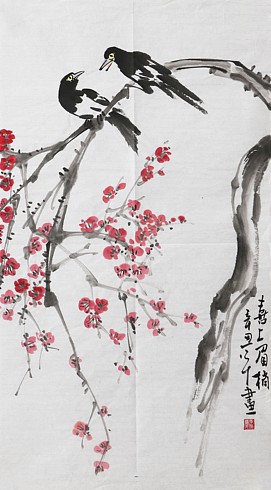 喜上眉梢
辛丑 畫